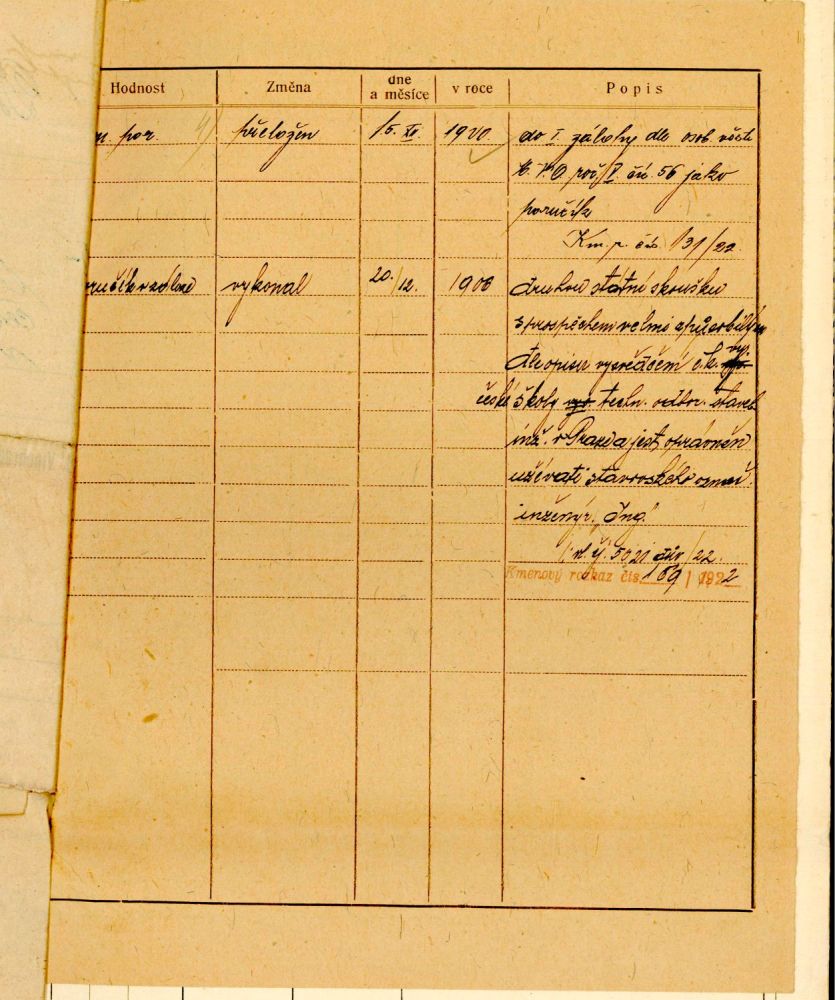 Hodnost Změna dne a měsíce v roce Popis
por. přeložen 15. XII. 1920 do I. zálohy dle osob. věst.
poř. V. čís. 56 jako
poručík
Km. r. čís. 131/22
vykonal 20./12. 1906 druhou státní zkoušku
s prospěchem velmi způsobilým
dle opisu vysvědčení c. k. vys.
české školy techn. odbor. staveb.
inž. v Praze a jest oprávněn
užívati stavovského označ.
inženýr "Ing."
č. j. 5021 /22.
Kmenový rozkaz čís. 169 / 1922